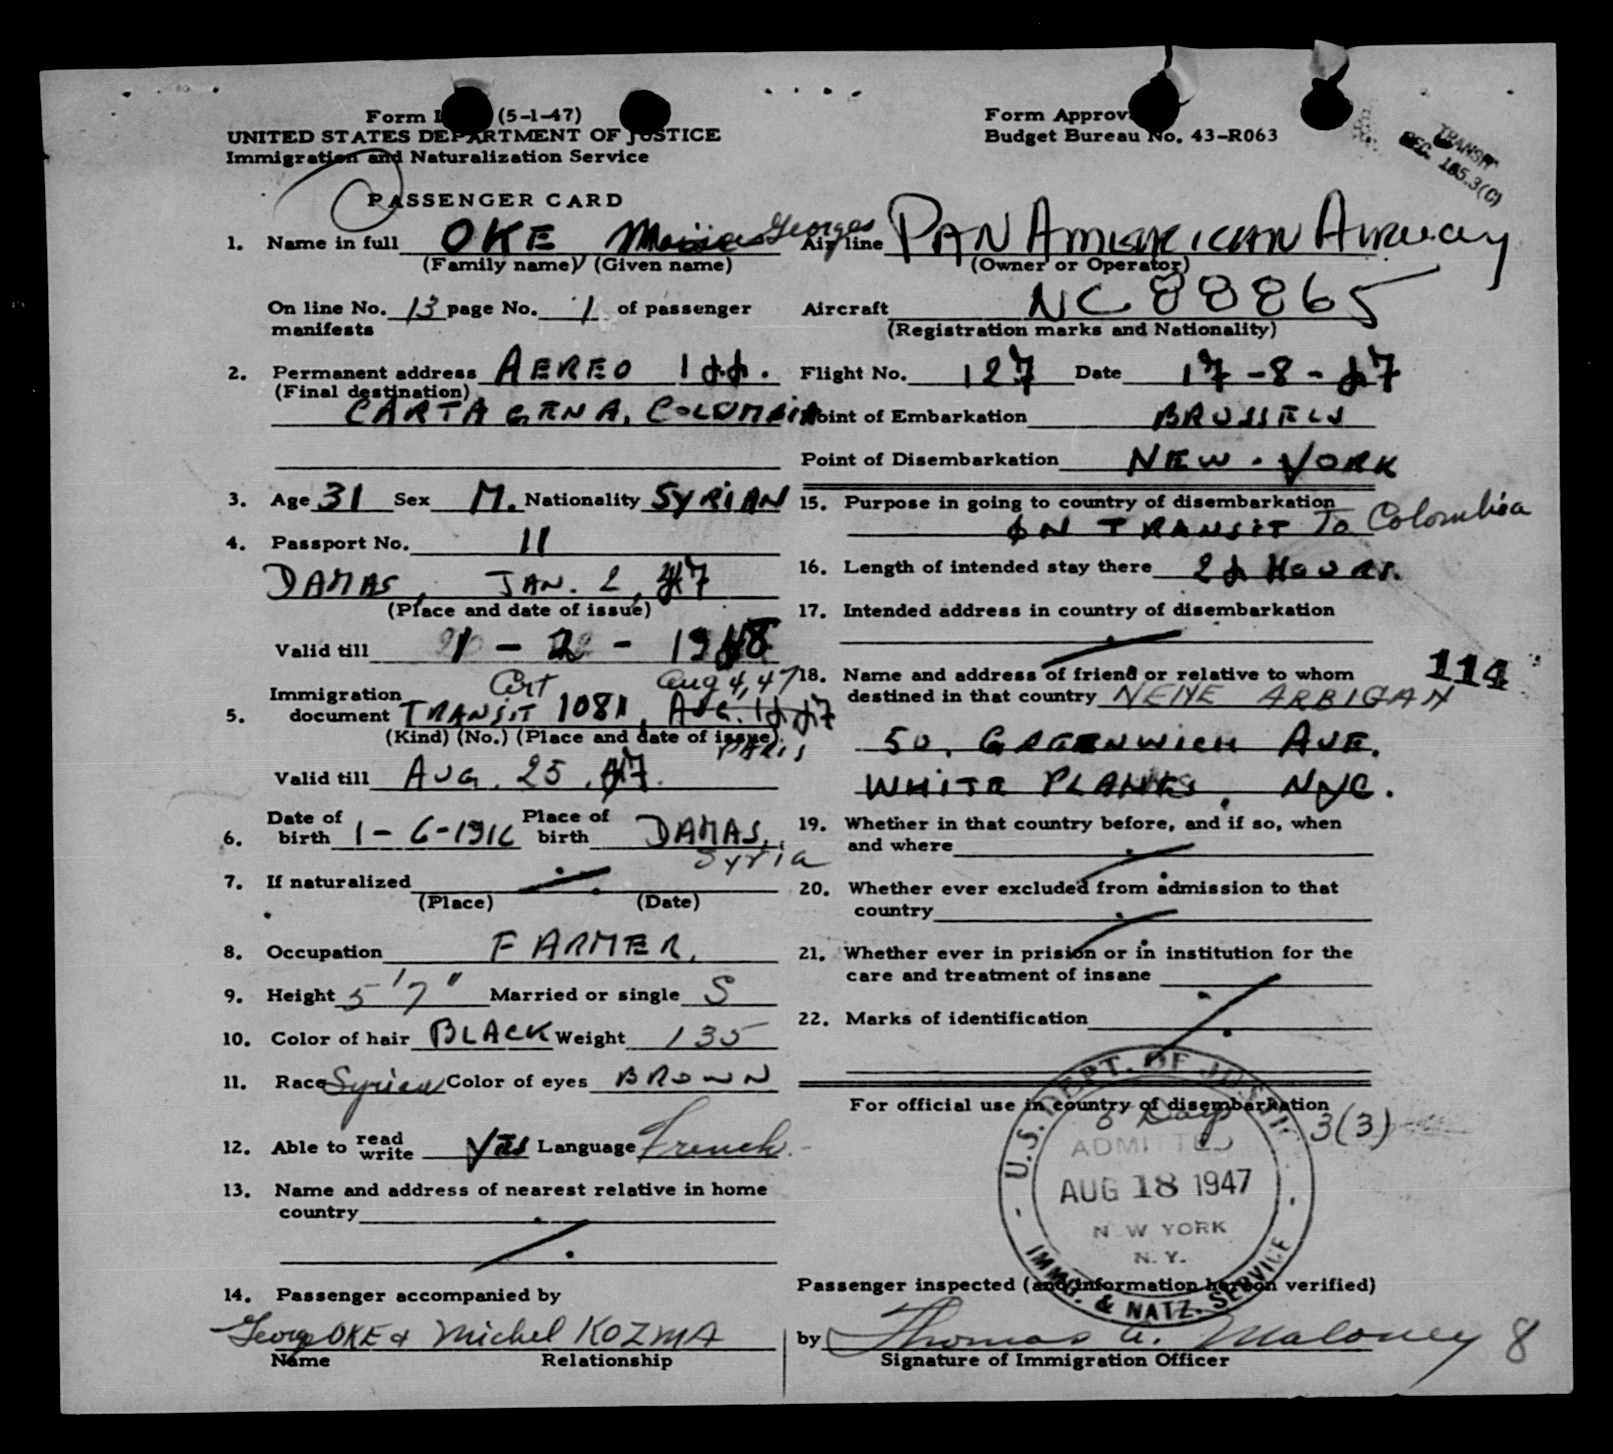 Form I (5-1-47)
UNITED STATES DEPARTMENT OF JUSTICE
Immigration and Naturalization Service
PASSENGER CARD
1. Name in full OKE Georges
(Family name) (Given name)
On line No. 13 page No. 1 of passenger
manifests
2. Permanent address AEREO 144.
(Final destination)
CARTAGENA, COLOMBIA
3. Age 31 Sex M. Nationality SYRIAN
4. Passport No. 11
DAMAS, JAN. 2, 47
(Place and date of issue)
Valid till 1948
Cert Aug 4, 47
Immigration
5. document TRANSIT 1081, AUG. 14 47
(Kind) (No.) (Place and date of issue)
PARIS
Valid till AUG. 25, 47.
Date of Place of
6. birth 1-6-1916 birth DAMAS,
Syria
7. If naturalized
(Place) (Date)
8. Occupation FARMER.
9. Height 5'7" Married or single S
10. Color of hair BLACK Weight 135
11. Race Syrian Color of eyes BROWN
12. Able to read write Yes Language French
13. Name and address of nearest relative in home
country
14. Passenger accompanied by
George OKE & Michel KOZMA
Name Relationship
Form Approv
Budget Bureau No. 43-R063
TRANSIT
SEC. 165.3(C)
Air line PAN AMERICAN Airway
(Owner or Operator)
Aircraft NC 88865
(Registration marks and Nationality)
Flight No. 127 Date 17-8-47
Point of Embarkation BRUSSELS
Point of Disembarkation NEW-YORK
15. Purpose in going to country of disembarkation
IN TRANSIT To Colombia
16. Length of intended stay there 24 Hours.
17. Intended address in country of disembarkation
18. Name and address of friend or relative to whom
destined in that country NEME ARBIGAN
114
50, GREENWICH AVE.
WHITE PLAINS, NYC.
19. Whether in that country before, and if so, when
and where
20. Whether ever excluded from admission to that
country
21. Whether ever in prision or in institution for the
care and treatment of insane
22. Marks of identification
For official use in country of disembarkation
U.S. DEPT. OF JUSTICE
Days
3(3)
ADMITTED
AUG 18 1947
NEW YORK
N.Y.
IMMG. & NATZ. SERVICE
Passenger inspected (and information hereon verified)
by Thomas A. Maloney 8
Signature of Immigration Officer